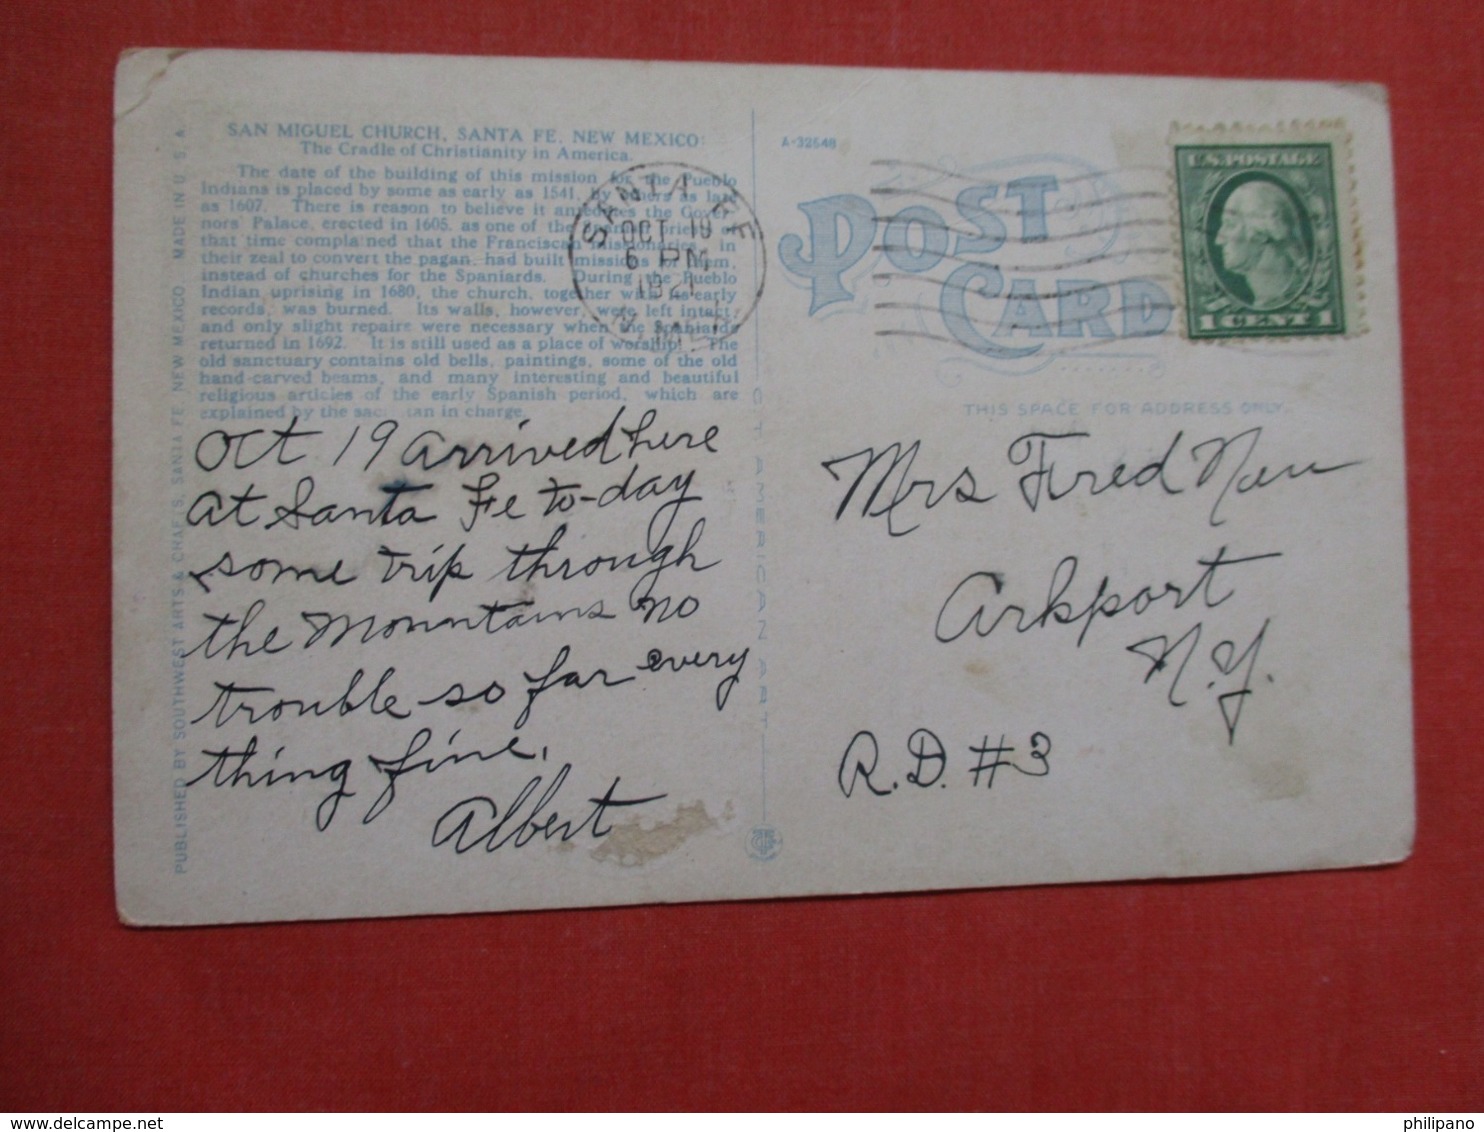 SAN MIGUEL CHURCH, SANTA FE, NEW MEXICO:
The Cradle of Christianity in America.
The date of the building of this mission for the Pueblo
Indians is placed by some as early as 1541, by others as late
as 1607. There is reason to believe it antedates the Gover-
nors' Palace, erected in 1605, as one of the priests of
that time complained that the Franciscan Missionaries, in
their zeal to convert the pagan, had built missions for them,
instead of churches for the Spaniards. During the Pueblo
Indian uprising in 1680, the church, together with its early
records, was burned. Its walls, however, were left intact,
and only slight repairs were necessary when the Spaniards
returned in 1692. It is still used as a place of worship. The
old sanctuary contains old bells, paintings, some of the old
hand-carved beams, and many interesting and beautiful
religious articles of the early Spanish period, which are
explained by the sacristan in charge.
Oct 19 arrived here
at Santa Fe to-day
some trip through
the Mountains no
trouble so far every
thing fine.
Albert
PUBLISHED BY SOUTHWEST ARTS & CRAFTS, SANTA FE, NEW MEXICO. MADE IN U. S. A.
SANTA FE
OCT 19
6 PM
1921
N. MEX.
C. T. AMERICAN ART
A-32648
POST CARD
U.S. POSTAGE
1 CENT 1
THIS SPACE FOR ADDRESS ONLY.
Mrs Fred
Arkport
N.Y.
R.D. #3
philipano
delcampe.net